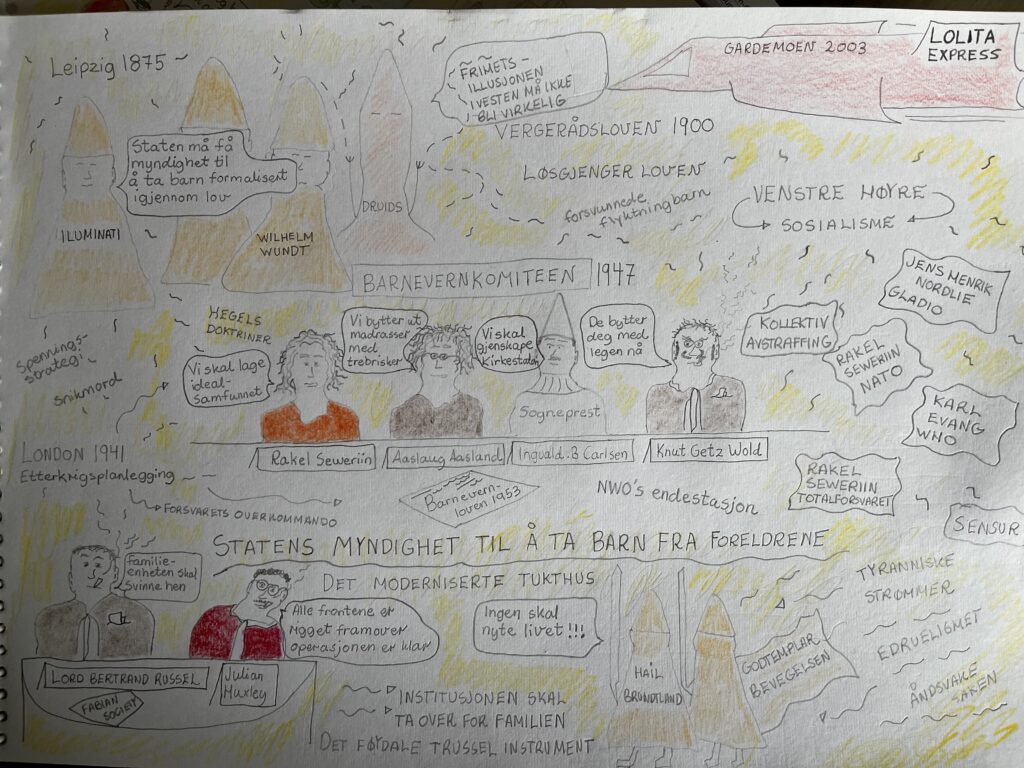 Leipzig 1875
FRIHETS-
ILLUSJONEN
I VESTEN MÅ IKKE
BLI VIRKELIG
GARDEMOEN 2003
LOLITA
EXPRESS
Staten må få
myndighet til
å ta barn formalisert
igjennom lov
ILUMINATI
WILHELM
WUNDT
DRUIDS
VERGERÅDSLOVEN 1900
LØSGJENGER LOVEN
forsvunnede
flyktningbarn
VENSTRE HØYRE
SOSIALISME
BARNEVERNKOMITEEN 1947
JENS HENRIK
NORDLIE
GLADIO
HEGELS
DOKTRINER
Spennings-
strategi
snikmord
Vi skal lage
ideal-
samfunnet
Vi bytter ut
madrasser
med
trebrisker
Vi skal
gjenskape
Kirkestaden
De bytter
deg med
legen nå
KOLLEKTIV
AVSTRAFFING
RAKEL
SEWERIIN
NATO
KARL
EVANG
WHO
Sogneprest
Rakel Seweriin
Aaslaug Aasland
Ingvald.B Carlsen
Knut Getz Wold
LONDON 1941
Etterkrigsplanlegging
FORSVARETS OVERKOMMANDO
Barnevern-
loven 1953
NWO's endestasjon
RAKEL
SEWERIIN
TOTALFORSVARET
SENSUR
STATENS MYNDIGHET TIL Å TA BARN FRA FORELDRENE
familie-
enheten skal
svinne hen
DET MODERNISERTE TUKTHUS
Alle frontene er
rigget framover
operasjonen er klar
Ingen skal
nyte livet!!!
TYRANNISKE
STRØMMER
EDRUELIGHET
ÅNDSVAKE
SAKEN
HAIL
BRUNDTLAND
GODTEMPLAR
BEVEGELSEN
LORD BERTRAND RUSSEL
Julian
Huxley
FABIAN
SOCIETY
INSTITUSJONEN SKAL
TA OVER FOR FAMILIEN
DET FØYDALE TRUSSEL INSTRUMENT